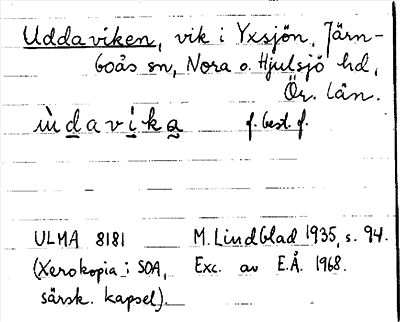 Uddaviken, vik i Yxsjön, Järn-
boås sn, Nora o. Hjulsjö hd,
Ör. län.
ùdavika f. best. f.
ULMA 8181 M. Lindblad 1935, s. 94.
(Xerokopia i SOA, Exc. av E.Å. 1968.
särsk. kapsel).